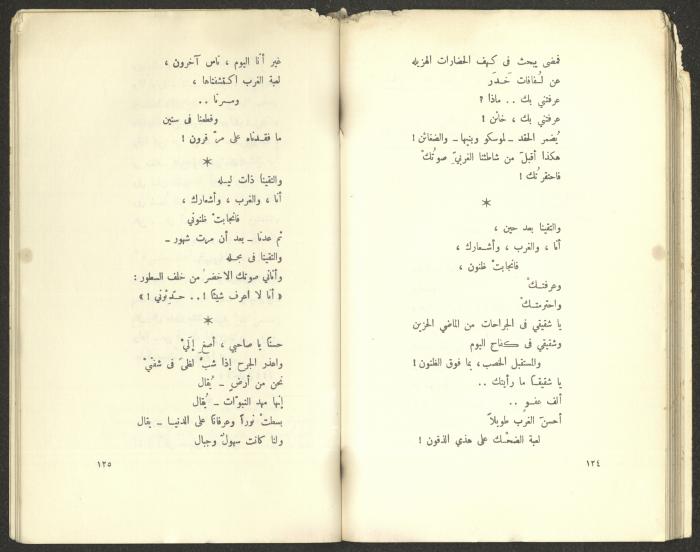 فمضى يبحث في كهف الحضارات الهزيله
عن لُفافات خَدَر
عرفتني بك .. ماذا ؟
عرفتني بك ، خائن !
يُضمر الحقد ـ لموسكو وبنيها ـ والضغائن !
هكذا أقبلَ من شاطئنا الغربيّ صوتُكْ
فاحتقرتُك !
*
والتقينا بعد حين ،
أنا ، والغرب ، وأشعارك ،
فانجابتْ ظنون ،
وعرفتكْ
واحترمتكْ
يا شقيقي في الجراحات من الماضي الحزين
وشقيقي في كفاح اليوم
والمستقبل الخصب ، بما فوق الظنون !
يا شقيقا ما رأيتك ..
ألف عفوٍ ..
أحسنَ الغرب طويلاً
لعبة الضحْك على هذي الذقون !
١٢٤
غير أنا اليوم ، ناس آخرون ،
لعبة الغرب اكتشفناها ،
وسرنا ..
وقطعنا في سنين
ما فقدناه على مرّ قرون !
*
والتقينا ذات ليله
أنا ، والغرب ، وأشعارك ،
فانجابتْ ظنوني
ثم عدنا ـ بعد أن مرت شهور ـ
والتقينا في مجله
وأتاني صوتك الاخضرُ من خلف السطور :
« أنا لا اعرف شيئا ! .. حدّثوني ! »
*
حسناً يا صاحبي ، أصغِ إليّْ
واعذر الجرح إذا شبّ لظىً في شفتيّْ
نحن من أرضٍ ـ يُقال
إنها مهد النبوّات ـ يُقال
بسطتْ نوراً وعرفاناً على الدنيا ـ يقال
ولنا كانت سهولٌ وجبال
١٢٥